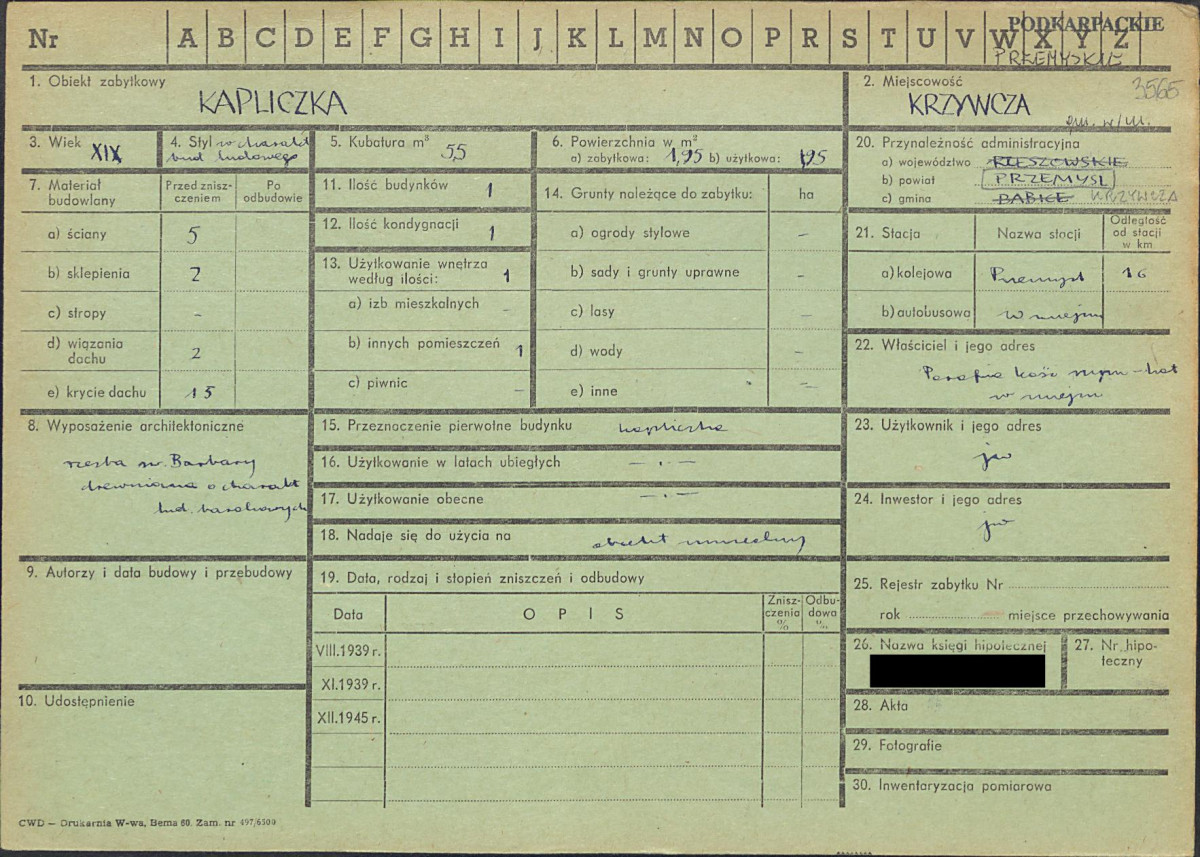 Nr A B C D E F G H I J K L M N O P R S T U V W X Y Z
PODKARPACKIE
PRZEMYSKIE
1. Obiekt zabytkowy
KAPLICZKA
2. Miejscowość
3565
KRZYWCZA
gm. w/m.
3. Wiek XIX
4. Styl w charakt
bud ludowego
5. Kubatura m³ 5,5
6. Powierzchnia w m²
a) zabytkowa: 1,95 b) użytkowa: 1,95
20. Przynależność administracyjna
a) województwo RZESZOWSKIE
b) powiat PRZEMYŚL
c) gmina BABICE KRZYWCZA
7. Materiał budowlany
Przed zniszczeniem
Po odbudowie
a) ściany 5
b) sklepienia 2
c) stropy -
d) wiązania dachu 2
e) krycie dachu 15
11. Ilość budynków 1
12. Ilość kondygnacji 1
13. Użytkowanie wnętrza według ilości: 1
a) izb mieszkalnych -
b) innych pomieszczeń 1
c) piwnic -
14. Grunty należące do zabytku: ha
a) ogrody stylowe -
b) sady i grunty uprawne -
c) lasy -
d) wody -
e) inne -
21. Stacja
Nazwa stacji
Odległość od stacji w km
a) kolejowa Przemyśl 16
b) autobusowa w miejscu
22. Właściciel i jego adres
Parafia kość rzym-kat
w miejscu
8. Wyposażenie architektoniczne
rzeźba św. Barbary
drewniana o charakt
lud. barokowych
15. Przeznaczenie pierwotne budynku kapliczka
16. Użytkowanie w latach ubiegłych - . -
17. Użytkowanie obecne - . -
18. Nadaje się do użycia na obiekt muzealny
23. Użytkownik i jego adres
jw
24. Inwestor i jego adres
jw
9. Autorzy i data budowy i przebudowy
10. Udostępnienie
19. Data, rodzaj i stopień zniszczeń i odbudowy
Data
OPIS
Zniszczenia %
Odbudowa %
VIII.1939 r.
XI.1939 r.
XII.1945 r.
25. Rejestr zabytku Nr
rok miejsce przechowywania
26. Nazwa księgi hipotecznej
27. Nr hipoteczny
28. Akta
29. Fotografie
30. Inwentaryzacja pomiarowa
CWD — Drukarnia W-wa, Bema 60. Zam. nr 497/6500